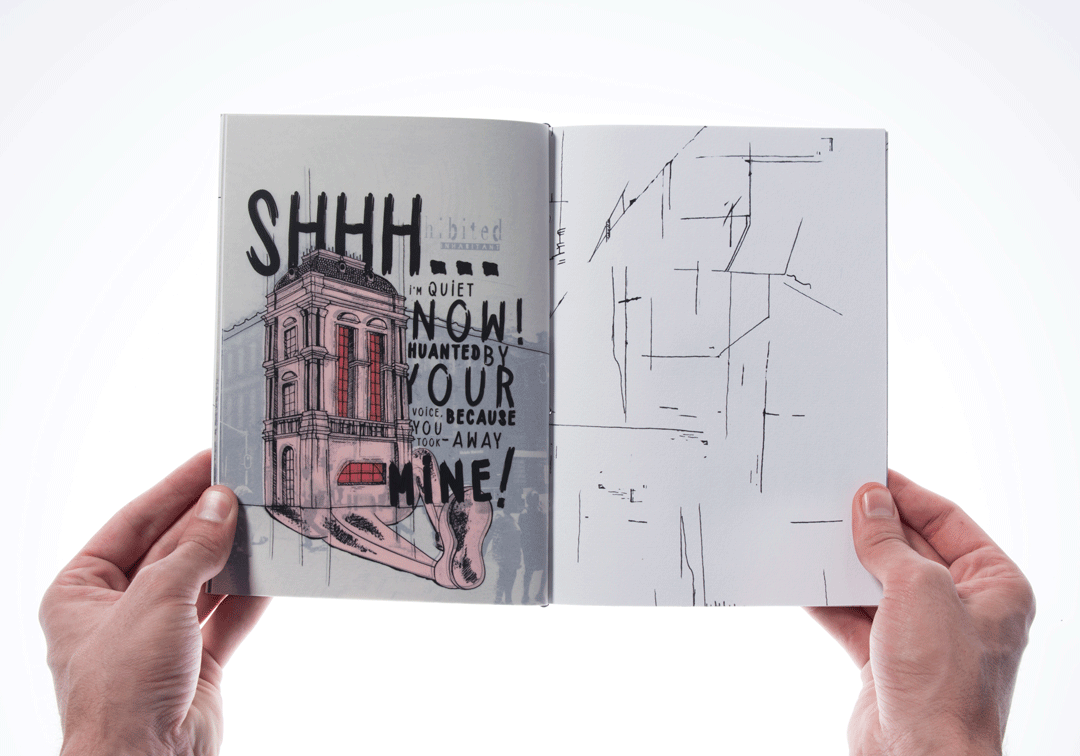 SHHH...
hibited
INHABITANT
I'M QUIET
NOW!
HUANTED BY
YOUR
VOICE, BECAUSE
YOU
TOOK-AWAY
MINE!